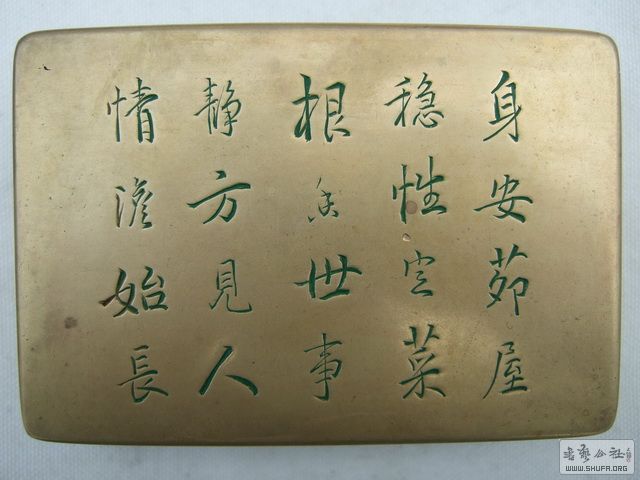 身安茆屋
稳性定菜
根香世事
静方見人
情澹始長
書藝公社
WWW.SHUFA.ORG